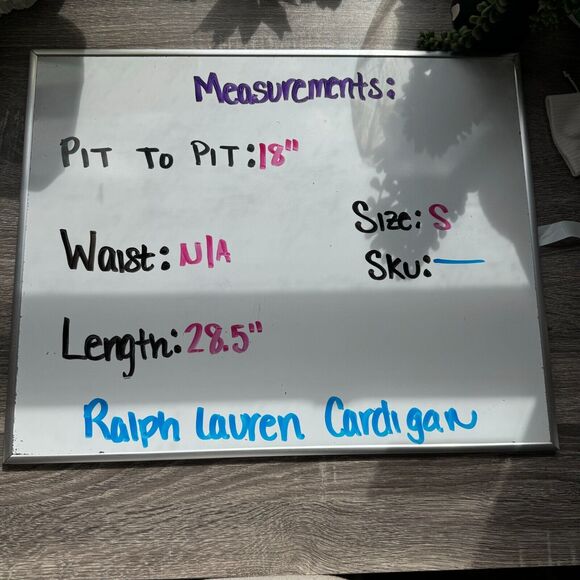 Measurements:
PIT TO PIT: 18"
Waist: N/A
Size: S
SKU: —
Length: 28.5"
Ralph Lauren Cardigan